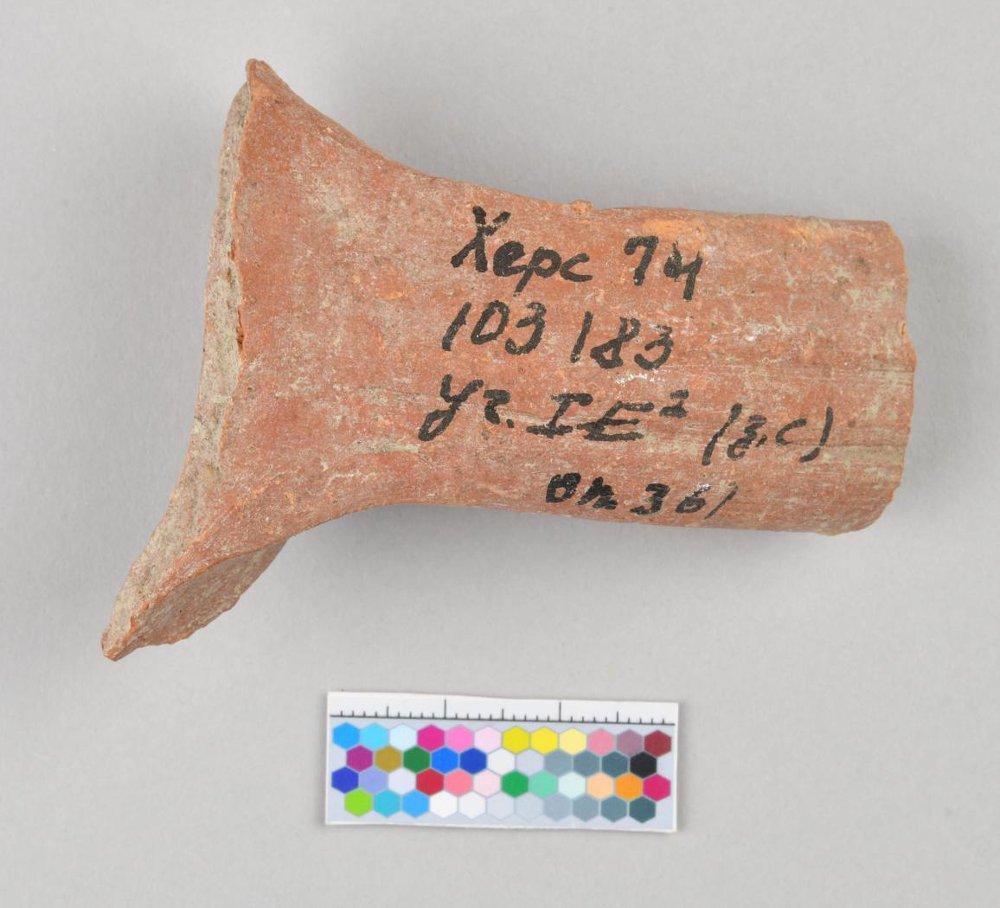 Херс 74
103 183
Уч. IE² (з.с)
оп 361